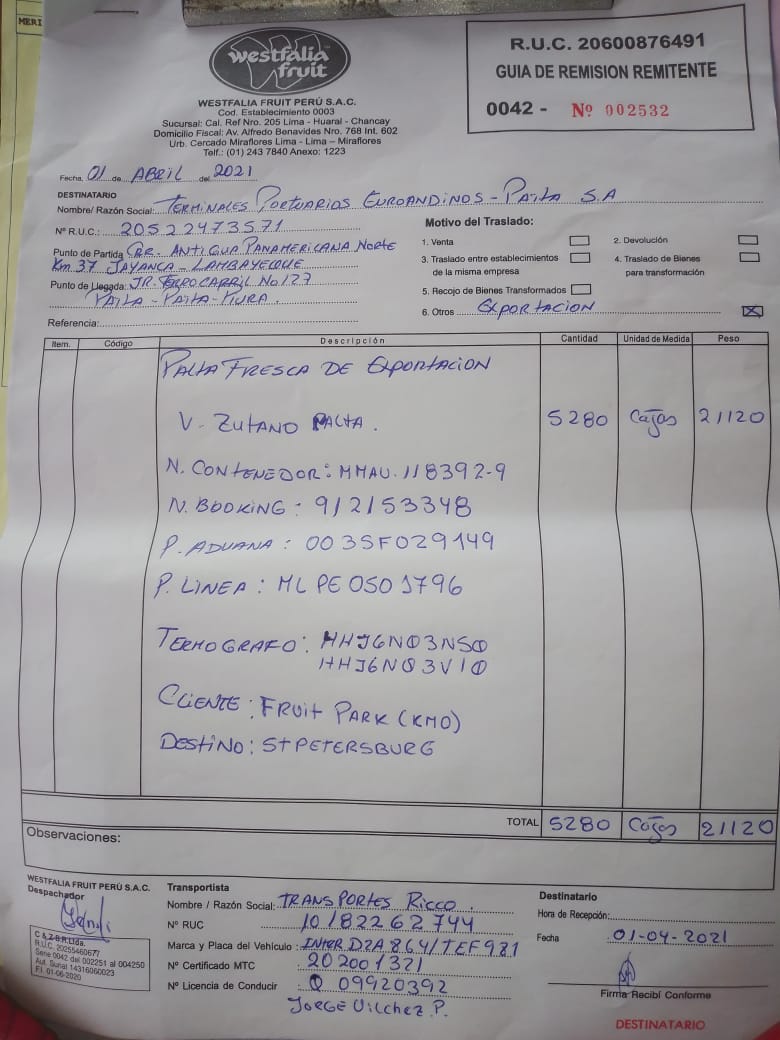 MERI
westfalia
fruit
WESTFALIA FRUIT PERÚ S.A.C.
Cod. Establecimiento 0003
Sucursal: Cal. Ref Nro. 205 Lima - Huaral - Chancay
Domicilio Fiscal: Av. Alfredo Benavides Nro. 768 Int. 602
Urb. Cercado Miraflores Lima - Lima - Miraflores
Telf.: (01) 243 7840 Anexo: 1223
R.U.C. 20600876491
GUIA DE REMISION REMITENTE
0042 - Nº 002532
Fecha, 01 de ABRIL del 2021
DESTINATARIO
Nombre/ Razón Social: TERMINALES PORTUARIOS EUROANDINOS - PAITA S.A
Nº R.U.C.: 20522473571
Punto de Partida CAR. ANTIGUA PANAMERICANA NORTE
Km 37 JAYANCA - LAMBAYEQUE
Punto de Llegada: JR. FERROCARRIL No 127
PAITA - PAITA - PIURA.
Referencia:
Motivo del Traslado:
1. Venta
2. Devolución
3. Traslado entre establecimientos
de la misma empresa
4. Traslado de Bienes
para transformación
5. Recojo de Bienes Transformados
6. Otros EXPORTACION X
Item. Código Descripción Cantidad Unidad de Medida Peso
PALTA FRESCA DE EXPORTACION
V. ZUTANO PALTA. 5280 Cajas 21120
N. CONTENEDOR: MMAU. 118392-9
N. BOOKING: 912153348
P. ADUANA: 003SF029149
P. LINEA: MLPE0501796
TERMOGRAFO: HHJ6N03NS0
HHJ6N03V10
CLIENTE: FRUIT PARK (KMO)
DESTINO: ST PETERSBURG
TOTAL 5280 Cajas 21120
Observaciones:
WESTFALIA FRUIT PERÚ S.A.C.
Despachador
C & Z S.R.Ltda.
R.U.C. 20255460677
Serie 0042 del 002251 al 004250
Aut. Sunat 14316060023
F.I. 01-06-2020
Transportista
Nombre / Razón Social: TRANSPORTES RICCO.
Nº RUC 10182262744
Marca y Placa del Vehículo: INTER D2A864/TEF981
Nº Certificado MTC 202001321
Nº Licencia de Conducir Q 09920392
JORGE VILCHEZ P.
Destinatario
Hora de Recepción:
Fecha 01-04-2021
Firma Recibí Conforme
DESTINATARIO